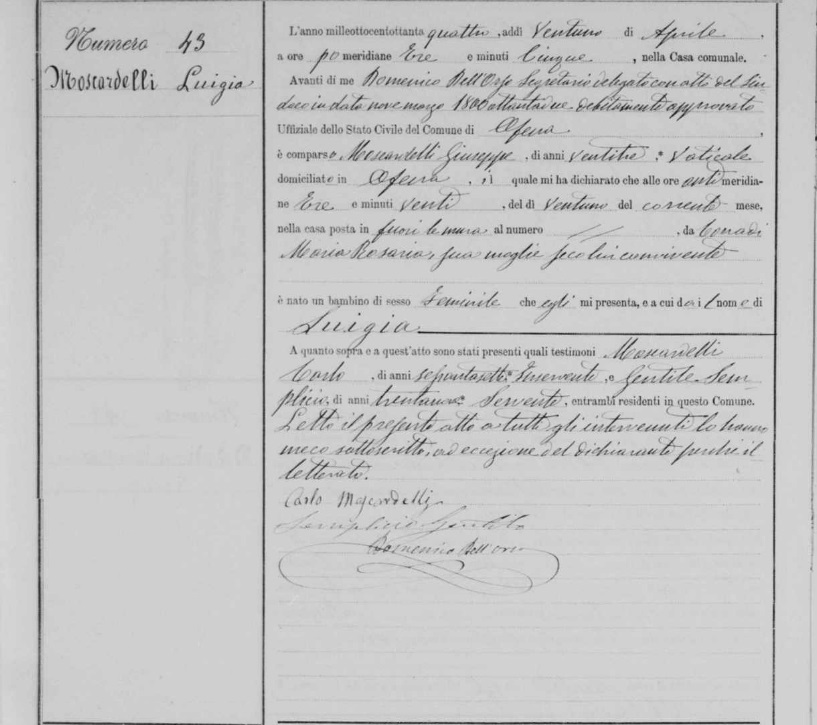 Numero 43
Moscardelli Luigia
L'anno milleottocentottanta quattro, addì Ventuno di Aprile,
a ore po meridiane Tre e minuti Cinque, nella Casa comunale.
Avanti di me Domenico Dell'Orso Segretario delegato con atto del Sin
daco in data nove marzo 1800 ottantadue debitamente approvato
Uffiziale dello Stato Civile del Comune di Ofena,
è comparso Moscardelli Giuseppe, di anni ventitre
domiciliato in Ofena, il quale mi ha dichiarato che alle ore anti meridia-
ne Tre e minuti venti, del dì Ventuno del corrente mese,
nella casa posta in fuori le mura al numero //, da Corradi
Maria Rosaria, sua moglie seco lui convivente
è nato un bambino di sesso Feminile che egli mi presenta, e a cui dà il nome di
Luigia
A quanto sopra e a quest'atto sono stati presenti quali testimoni Moscardelli
Carlo, di anni Inserviente, e Gentile Sem
plicio, di anni trentanove Serviente, entrambi residenti in questo Comune.
Letto il presente atto a tutti gli intervenuti lo hanno
meco sottoscritto, ad eccezione del dichiarante perché il
letterato.
Carlo Moscardelli
Semplicio Gentile
Domenico Dell'Orso